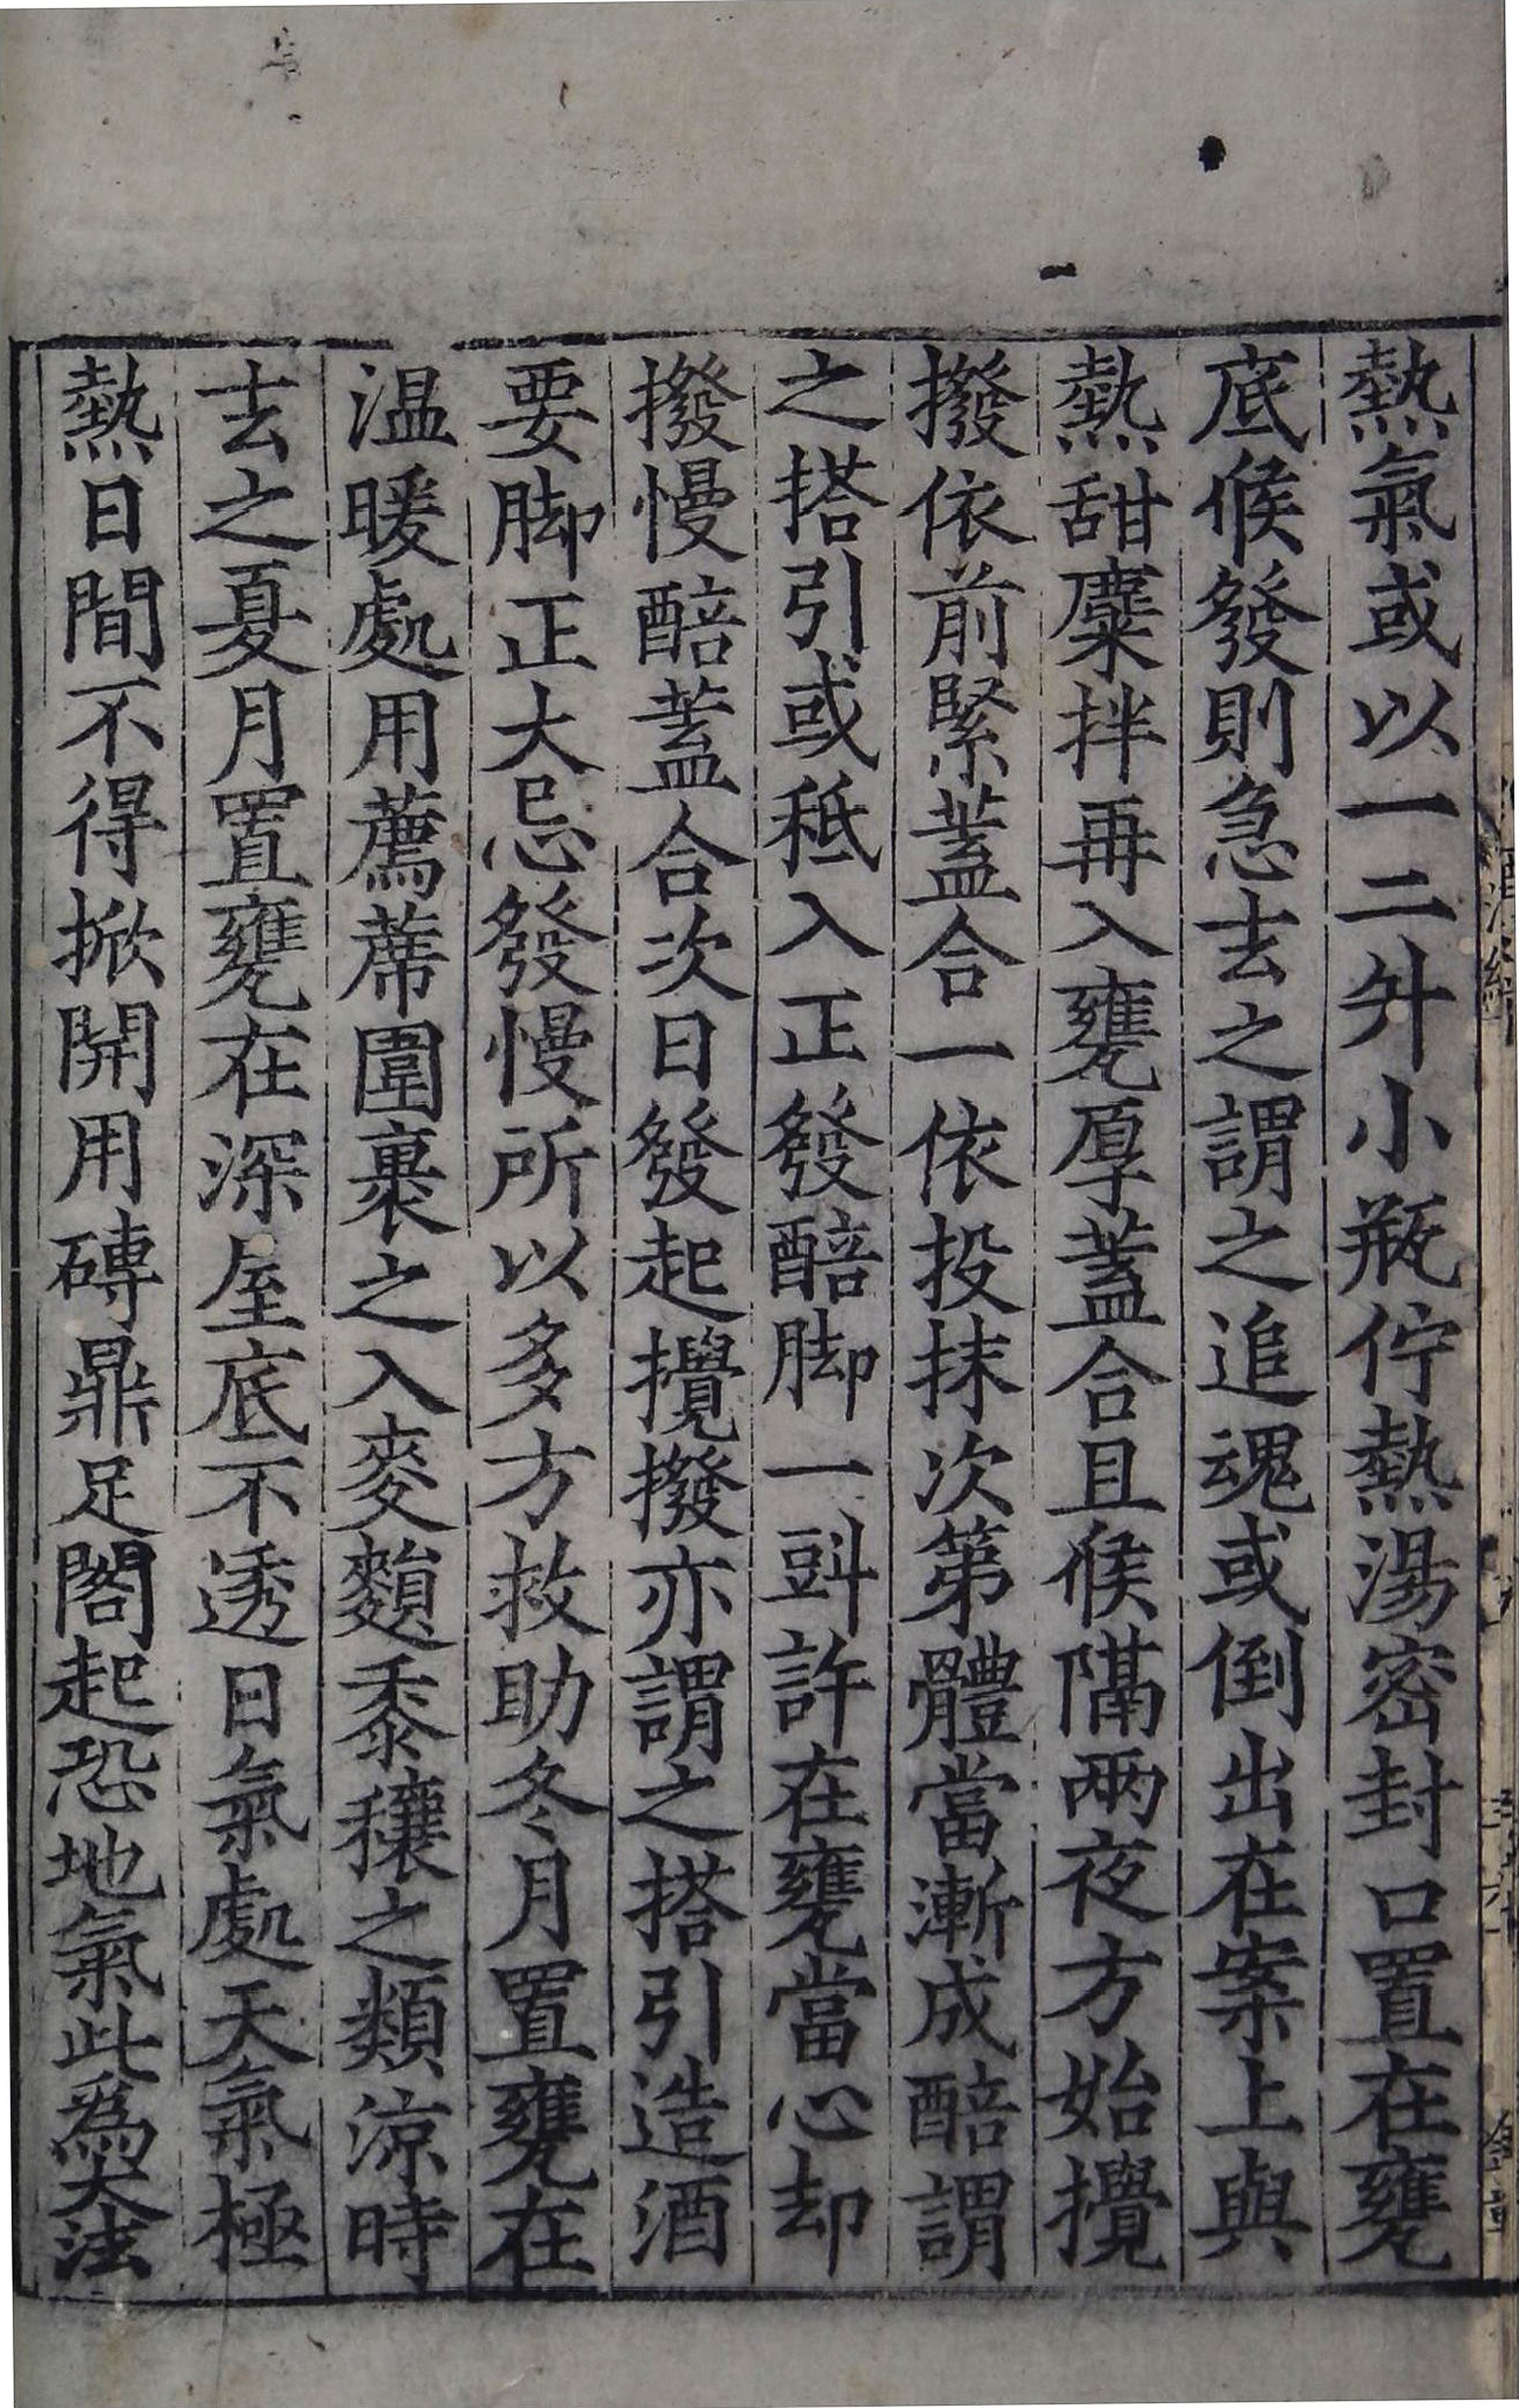 熱氣或以一二升小瓶佇熱湯密封口置在甕
底候發則急去之謂之追魂或倒出在案上與
熱甜麋拌再入甕厚蓋合且候隔兩夜方始攪
撥依前緊蓋合一依投抹次第體當漸成醅謂
之搭引或秪入正發醅脚一㪷許在甕當心却
撥慢醅蓋合次日發起攪撥亦謂之搭引造酒
要脚正大忌發慢所以多方救助冬月置甕在
温暖處用薦蓆圍裹之入麥𪍿黍穰之類涼時
去之夏月置甕在深屋底不透日氣處天氣極
熱日間不得掀開用磚鼎足閣起恐地氣此爲大法